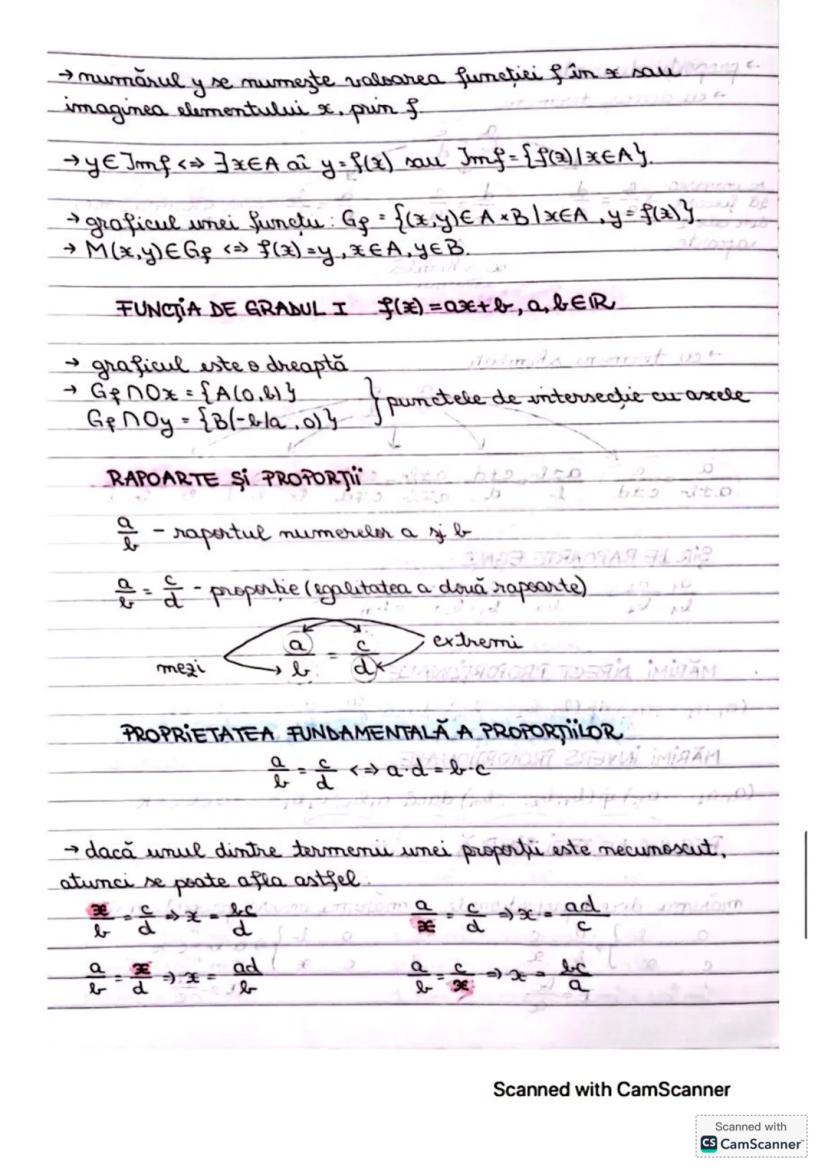 → numărul y se numește valoarea funcției f în x sau
imaginea elementului x, prin f.
→ y∈Imf <=> ∃x∈A aî y=f(x) sau Imf={f(x)|x∈A}.
→ graficul unei funcții: Gf = {(x,y)∈A×B|x∈A, y=f(x)}
→ M(x,y)∈Gf <=> f(x)=y, x∈A, y∈B.
FUNCȚIA DE GRADUL I f(x)=ax+b, a, b∈ℝ
→ graficul este o dreaptă
→ Gf∩Ox = {A(0,b)}
Gf∩Oy = {B(-b/a, 0)} } punctele de intersecție cu axele
RAPOARTE ȘI PROPORȚII
a/b - raportul numerelor a și b
a/b = c/d - proporție (egalitatea a două rapoarte)
mezi a/b = c/d extremi
PROPRIETATEA FUNDAMENTALĂ A PROPORȚIILOR
a/b = c/d <=> a·d = b·c
→ dacă unul dintre termenii unei proporții este necunoscut,
atunci se poate afla astfel.
x/b = c/d => x = bc/d a/x = c/d => x = ad/c
a/b = x/d => x = ad/b a/b = c/x => x = bc/a
Scanned with CamScanner
Scanned with
CS CamScanner